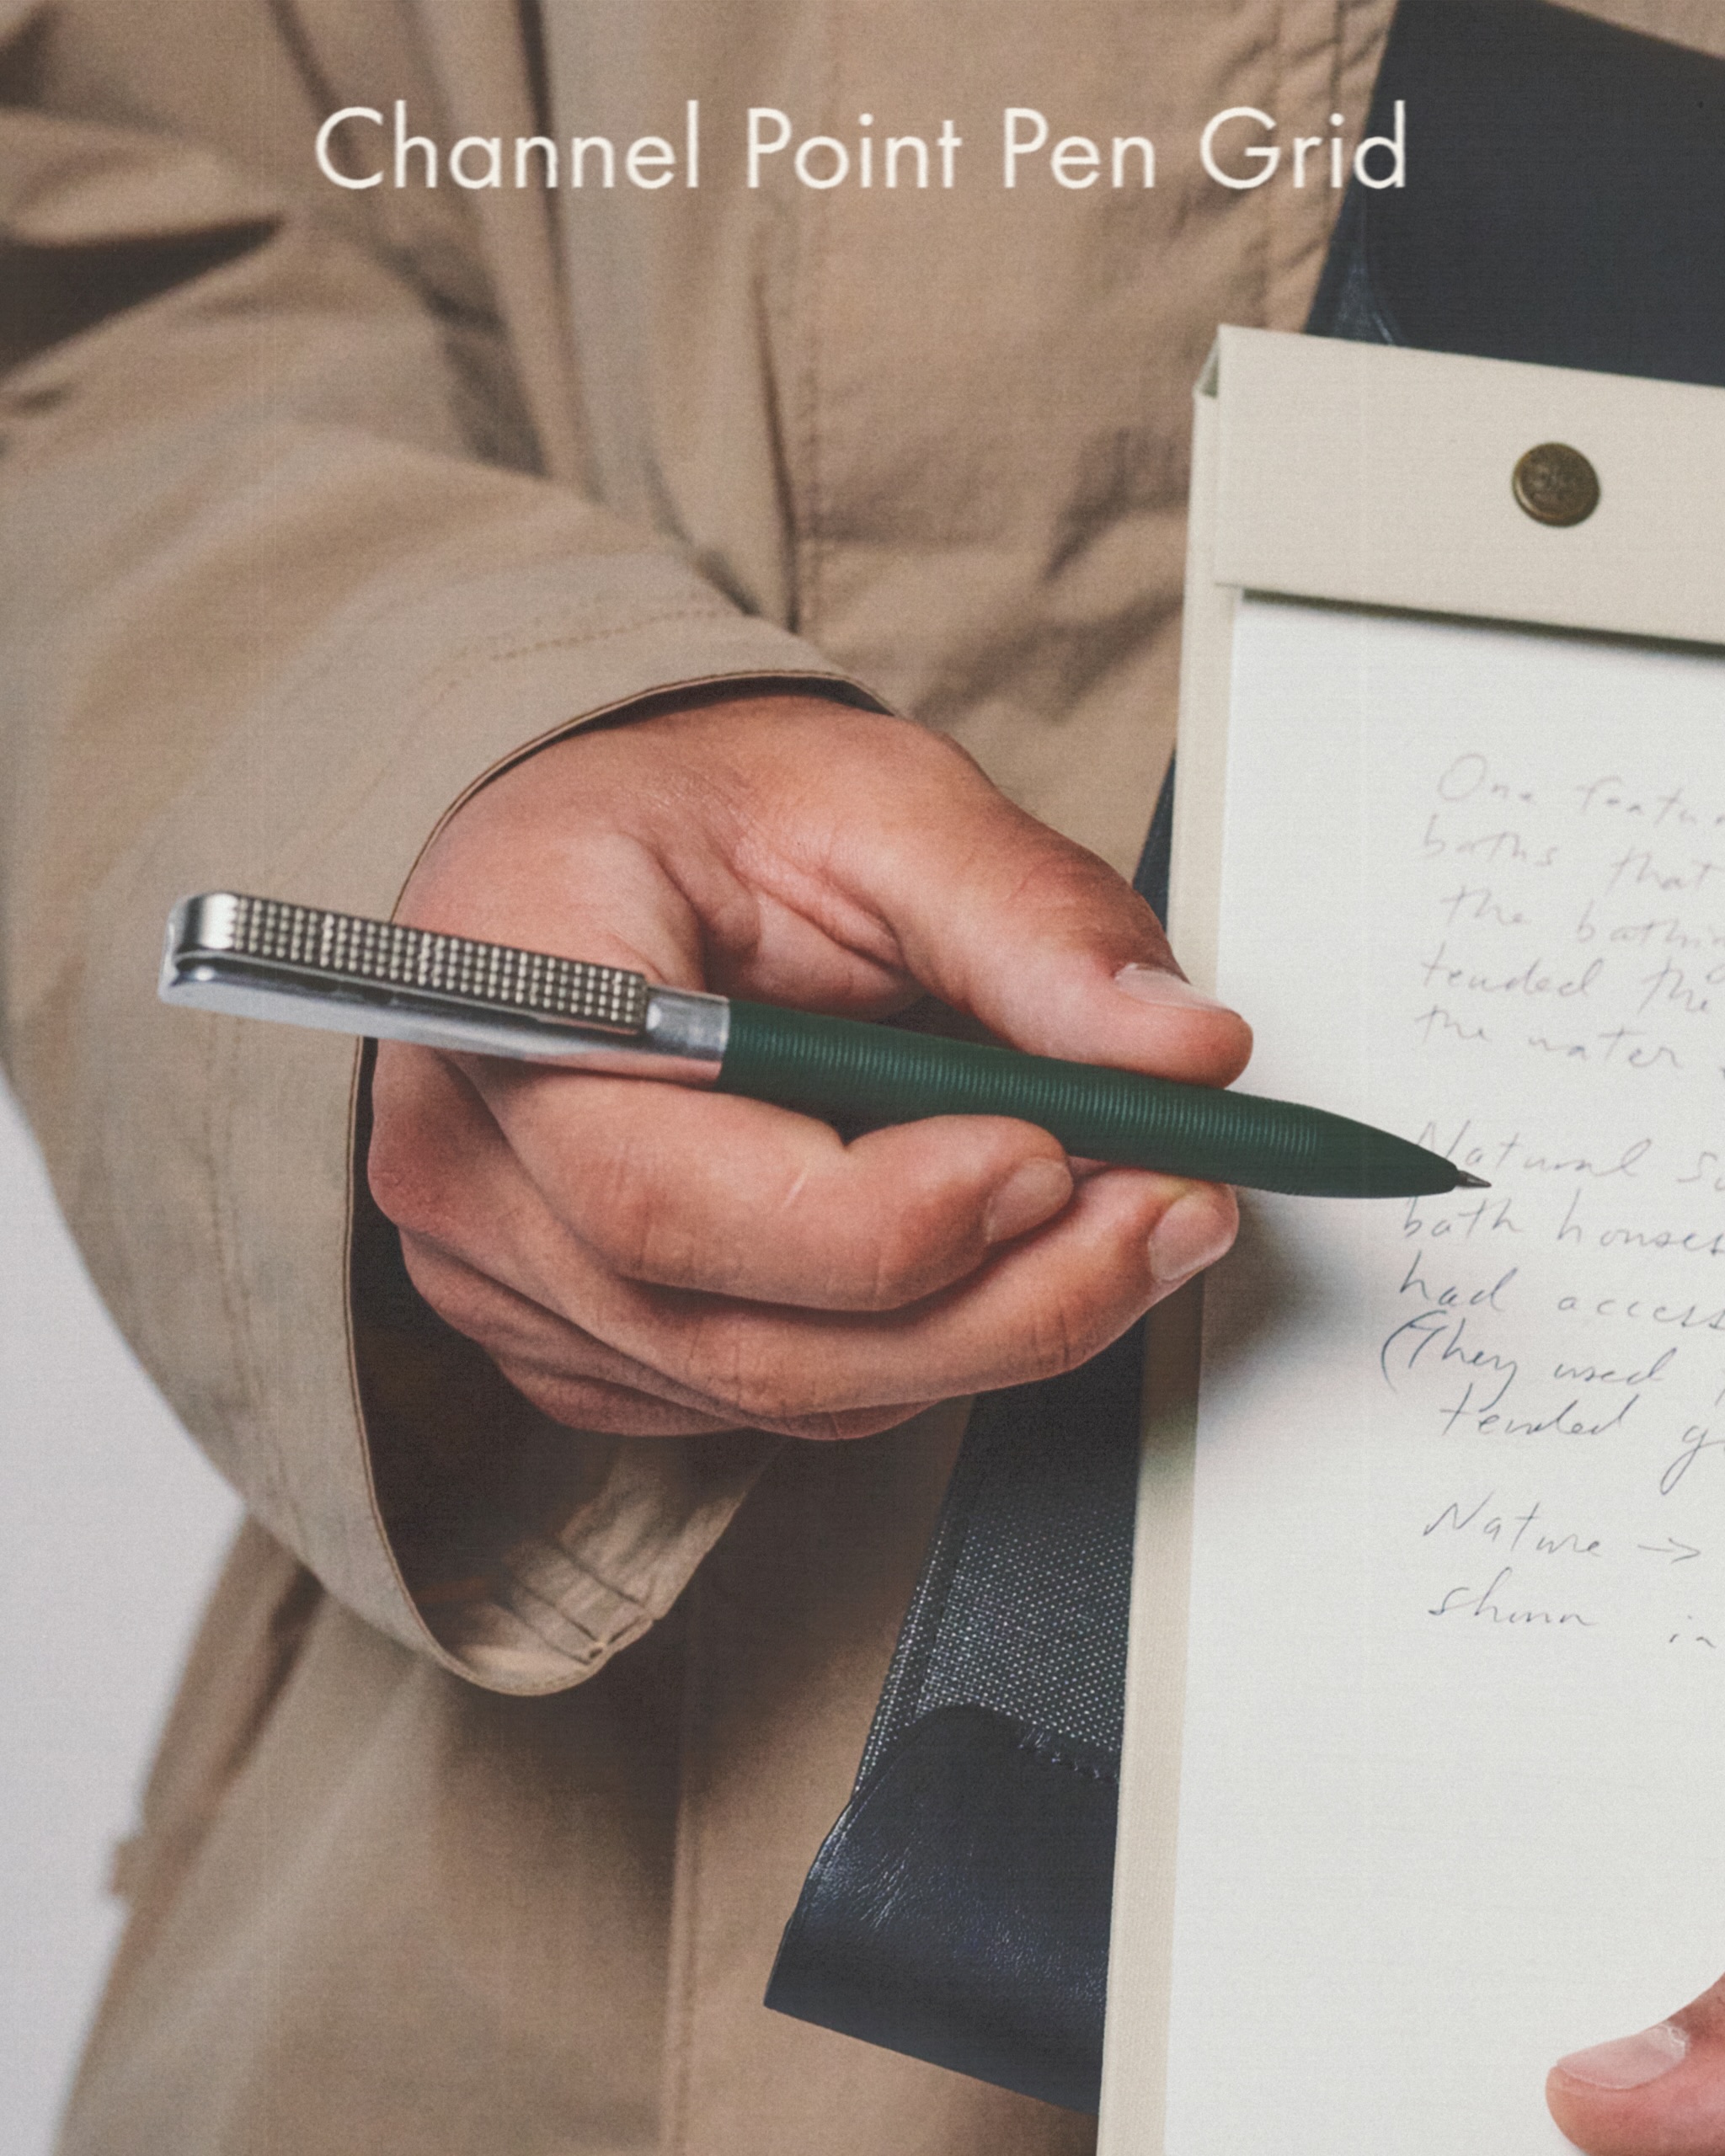 Channel Point Pen Grid
One featu
baths that
the bathin
tended the
the water
Natural su
bath houses
had access
(They used
tended g
Nature →
shown in